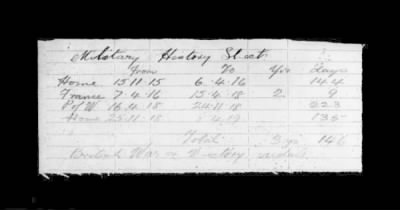 Military History Sheet.
from To Yrs Days
Home 15.11.15 6.4.16 144
France 7.4.16 15.4.18 2 9
P of W 16.4.18 24.11.18 223
Home 25.11.18 8.4.19 135
Total 3 yrs 146
British War & Victory medals